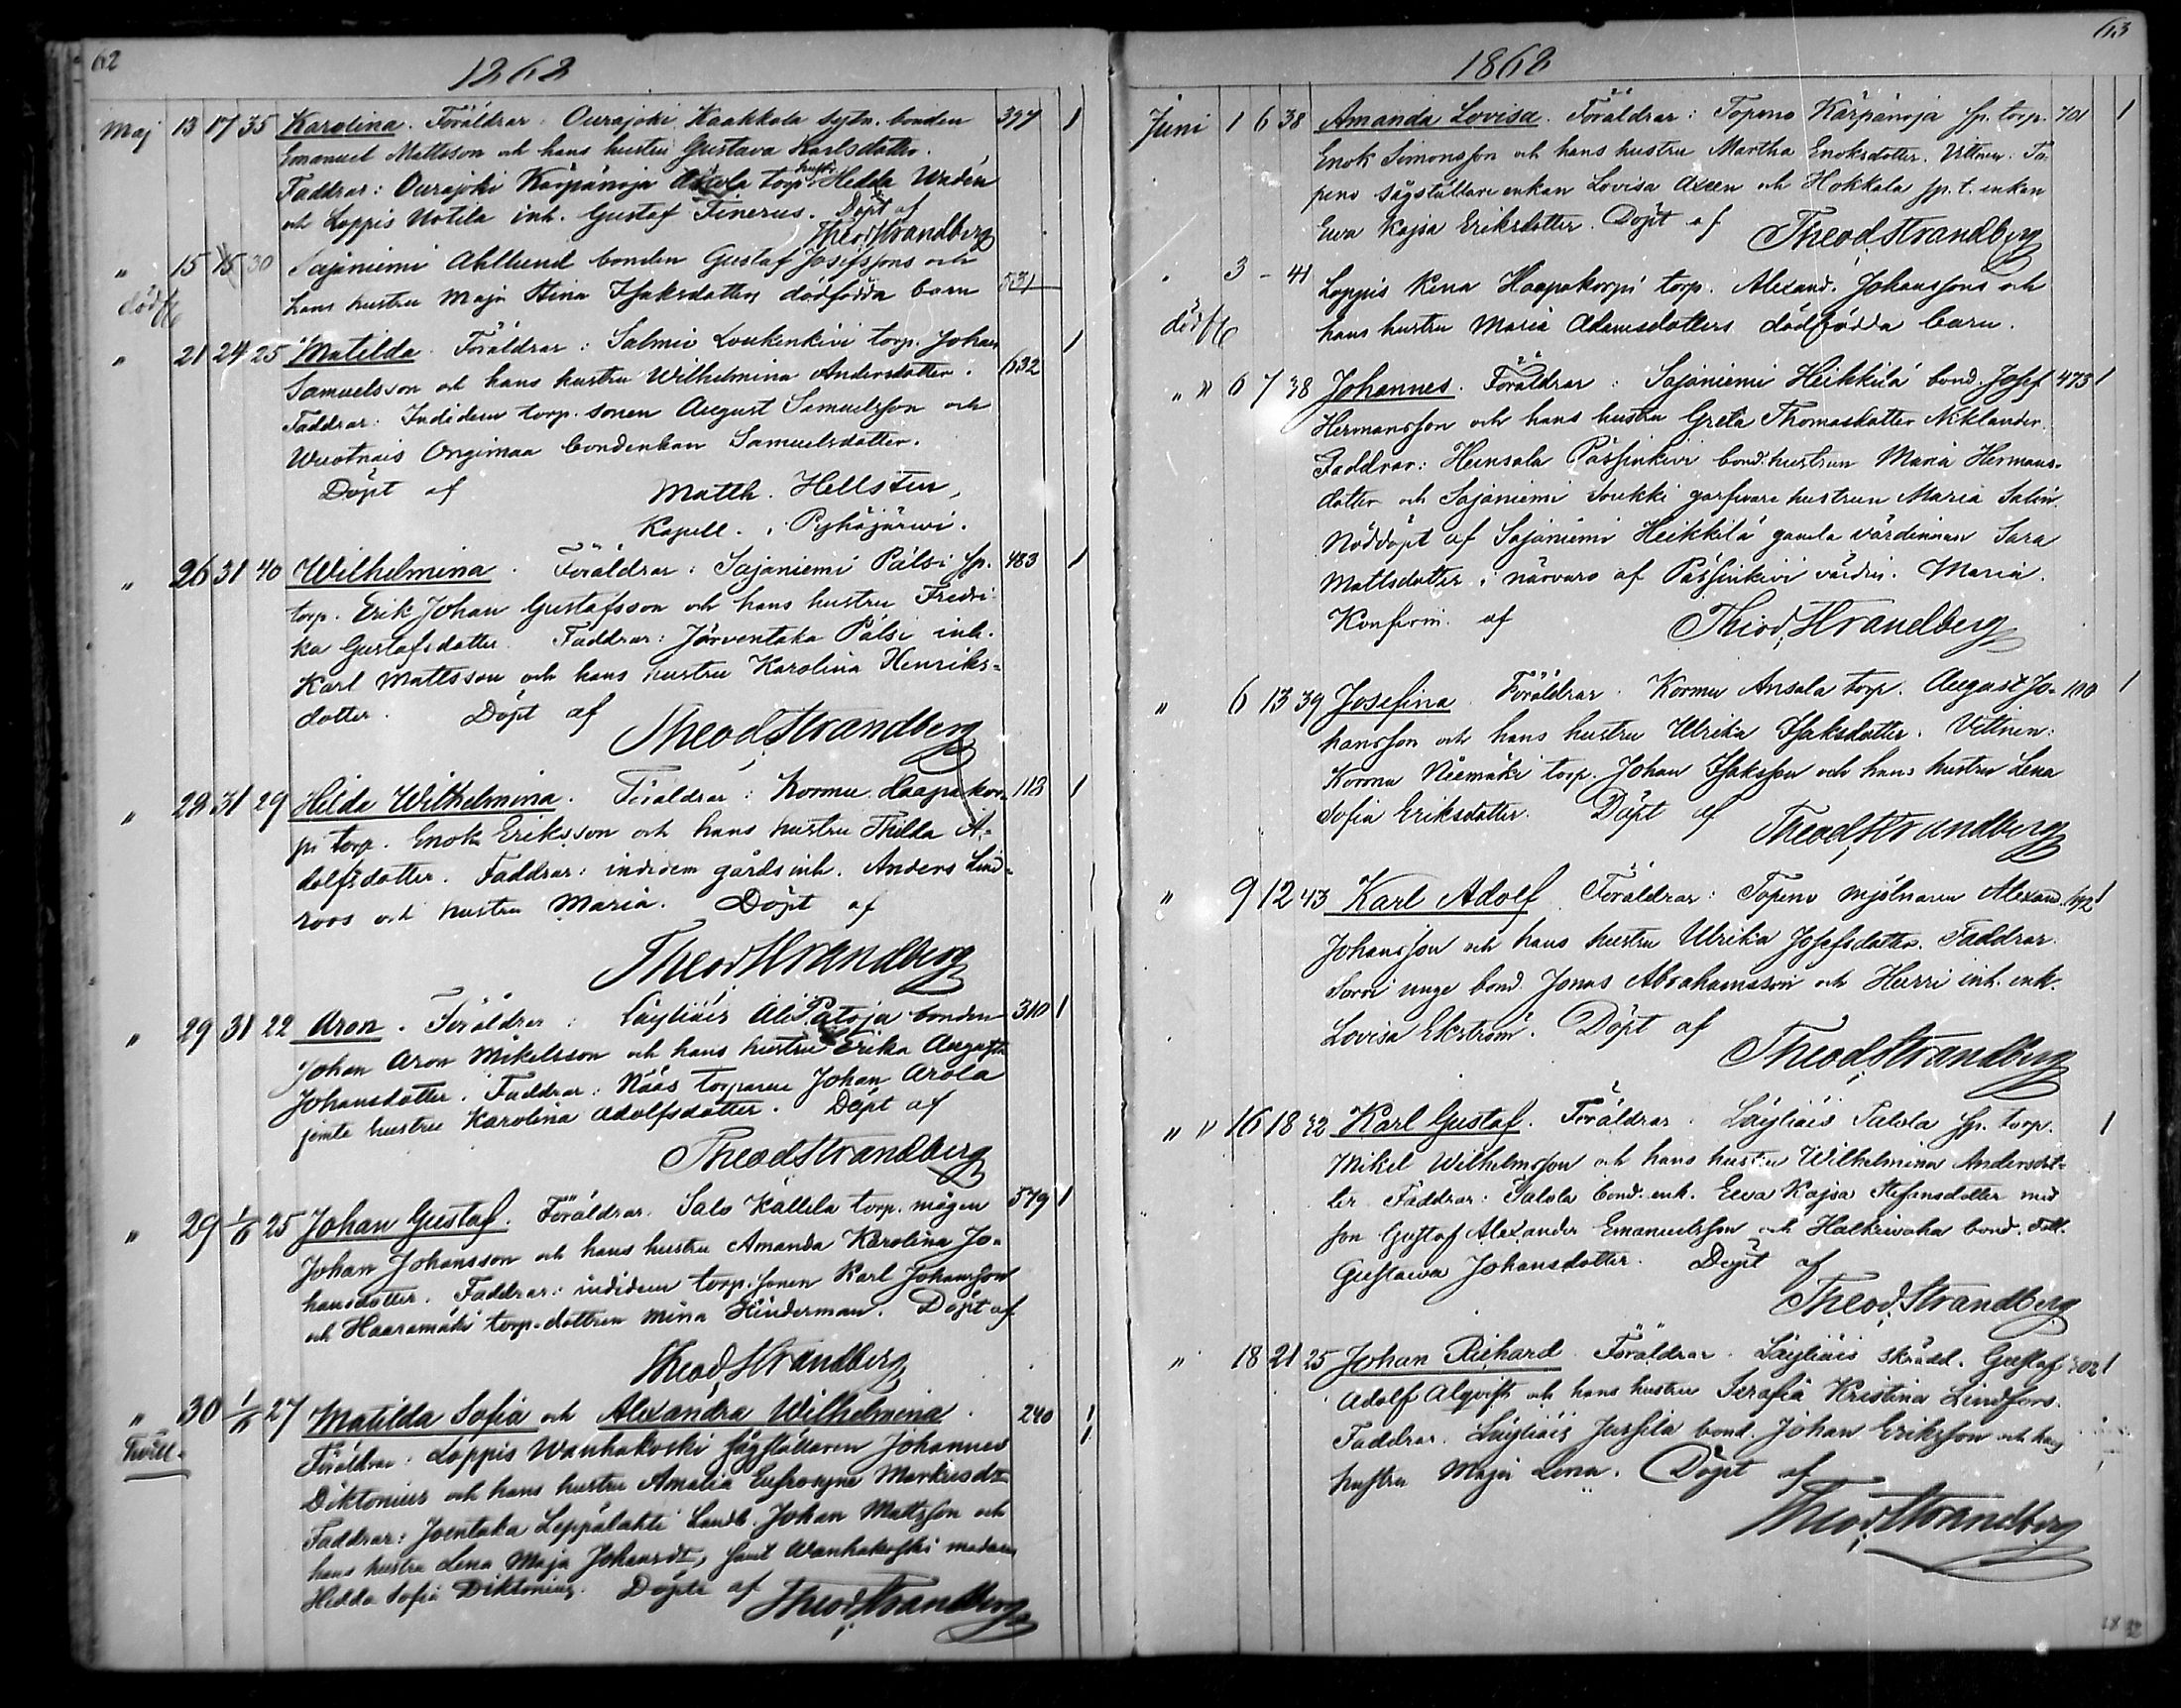 62
1862
Maj 13 17 35 Karolina. Föräldrar. Ourajoki Kaakkola sytn. bonden 397 1
Emanuel Mattsson och hans hustru Gustava Karlsdotter.
Faddrar: Ourajoki Kärpänoja torp. hust. Hedda Widén
och Loppis Uotila inh. Gustaf Finerus. Döpt af
Theod Strandberg
" 15 15 30 Sajaniemi Ahllund bonden Gustaf Josefssons och
dödf. hans hustru Maja Stina Isaksdotters dödfödda barn 531
" 21 24 25 Matilda. Föräldrar: Salmis Loukenkivi torp. Johan 1
Samuelsson och hans hustru Wilhelmina Andersdotter. 632
Faddrar: Indidem torp. sonen August Samuelsson och
Wuotnais Ongimaa bondenkan Samuelsdotter.
Döpt af Matth. Hellsten,
Kapell. i Pyhäjärwi.
" 26 31 40 Wilhelmina. Föräldrar: Sajaniemi Pälsi sp. 483 1
torp. Erik Johan Gustafsson och hans hustru Fredri-
ka Gustafsdotter. Faddrar: Järventaka Pälsi inh.
Karl Mattsson och hans hustru Karolina Henriks-
dotter. Döpt af
Theod Strandberg
" 28 31 29 Hilda Wilhelmina. Föräldrar: Kormu Haapakor- 113 1
pi torp. Enok Eriksson och hans hustru Thilda A-
dolfsdotter. Faddrar: indidem gårds inh. Anders Lind-
roos och hustru Maria. Döpt af
Theod Strandberg
" 29 31 22 Aron. Föräldrar: Läyliäis Ali Patoja bonden 310 1
Johan Aron Mikelsson och hans hustru Erika Augusta
Johansdotter. Faddrar: Nääs torparen Johan Arola
jemte hustru Karolina Adolfsdotter. Döpt af
Theod Strandberg
" 29 1/6 25 Johan Gustaf. Föräldrar. Salo Källela torp. mågen 579 1
Johan Johansson och hans hustru Amanda Karolina Jo-
hansdotter. Faddrar: indidem torp. sonen Karl Johansson
och Haaramäki torp. dottren Mina Hinderman. Döpt af
Theod. Strandberg
" 30 1/6 27 Matilda Sofia och Alexandra Wilhelmina. 240 1
Tvill. Föräldrar: Loppis Wanhakoski sågställaren Johannes 1
Diktonius och hans hustru Amalia Eufrosyne Markusdt
Faddrar: Joentaka Leppälahti Landb. Johan Mattsson och
hans hustru Lena Maja Johansdt, samt Wanhakoski madam
Hedda Sofia Diktonius. Döpte af Theod Strandberg
63
1862
Juni 1 6 38 Amanda Lovisa. Föräldrar: Topeno Kärpänoja sp. torp. 701 1
Enok Simonsson och hans hustru Martha Enoksdotter. Vittnen. To-
peno sågställare enkan Lovisa Axeen och Hokkala sp. t. enkan
Ewa Kajsa Eriksdotter. Döpt af Theod Strandberg
" 3 - 41 Loppis Kena Haapakorpi torp. Alexand. Johanssons och
dödf. hans hustru Maria Adamsdotters dödfödda barn.
" " 6 7 38 Johannes. Föräldrar: Sajaniemi Heikkilä bond. Josef 473 1
Hermansson och hans hustru Greta Thomasdotter Niklander.
Faddrar: Heinsala Passinkivi bond. hustrun Maria Hermans-
dotter och Sajaniemi Soukki garfvare hustrun Maria Salin.
Nöddöpt af Sajaniemi Heikkilä gamla värdinnan Sara
Mattsdotter i närvaro af Passinkivi värdin. Maria.
Konfirm. af Theod. Strandberg
" 6 13 39 Josefina. Föräldrar. Kormu Ansala torp. August Jo- 110 1
hansson och hans hustru Ulrika Isaksdotter. Vittnen:
Kormu Niemäki torp. Johan Isaksson och hans hustru Lena
Sofia Eriksdotter. Döpt af Theod Strandberg
" 9 12 43 Karl Adolf. Föräldrar: Topeno mjölnaren Alexand. 692 1
Johansson och hans hustru Ulrika Josefsdotter. Faddrar.
Sorri unge bond. Jonas Abrahamsson och Hurri inh. enk.
Lovisa Ekström. Döpt af
Theod Strandberg
" " 16 18 32 Karl Gustaf. Föräldrar. Läyliäis Talola sp. torp. 1
Mikel Wilhelmsson och hans hustru Wilhelmina Andersdot-
ter. Faddrar: Talola bond. enk. Eeva Kajsa Stefansdotter med
son Gustaf Alexander Emanuelsson och Halkiwaha bond. dott.
Gustawa Johansdotter. Döpt af
Theod. Strandberg
" 18 21 25 Johan Richard. Föräldrar. Läyliäis skrädd. Gustaf 302 1
Adolf Alqvist och hans hustru Serafia Kristina Lindfors.
Faddrar. Läyliäis Jussila bond. Johan Eriksson och hans
hustru Maja Lena. Döpt af
Theod. Strandberg